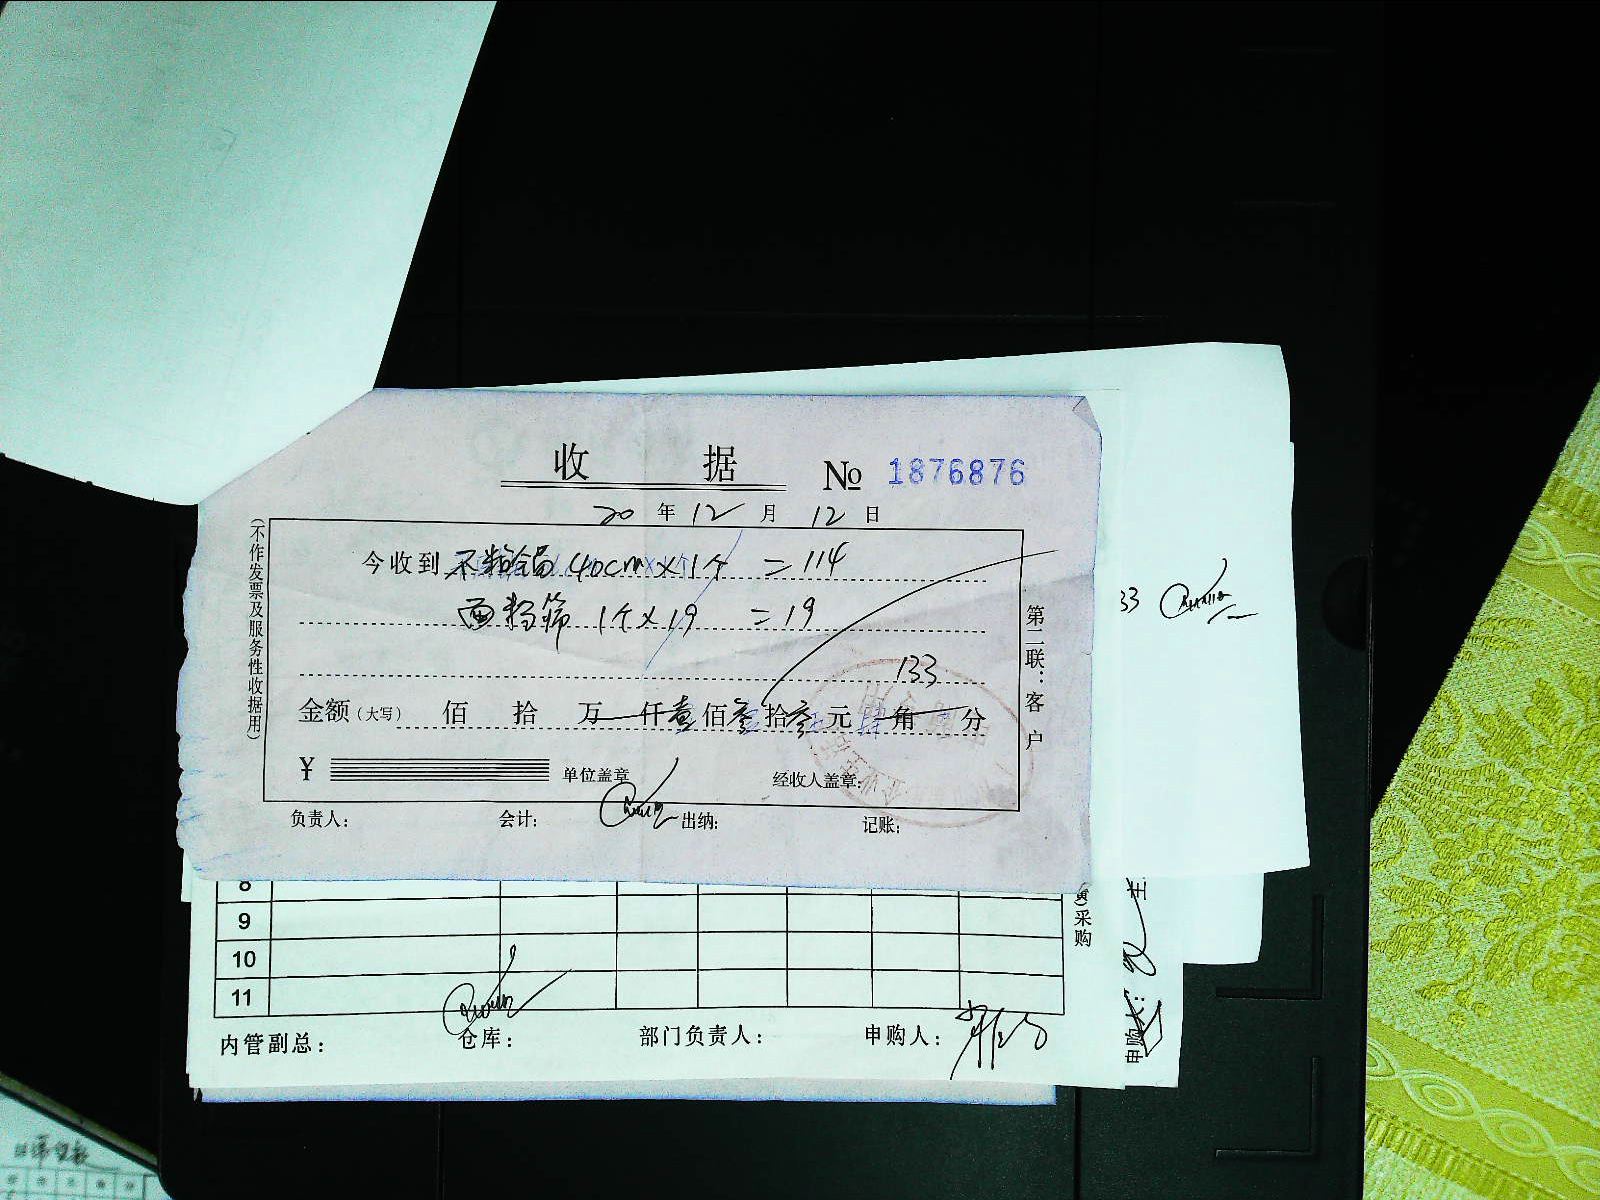 收 据 № 1876876
20 年 12 月 12 日
今收到 不粘锅 40cm×1个 =114
面粉筛 1个×19 =19
133
金额(大写) 佰 拾 万 仟 壹 佰 叁 拾 叁 元 角 分
¥ 单位盖章 经收人盖章:
负责人: 会计: 出纳: 记账:
(不作发票及服务性收据用)
第二联:客户
33
8
9
10
11
采购
内管副总: 仓库: 部门负责人: 申购人:
申购人: